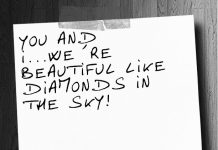 YOU AND
I...WE´RE
BEAUTIFUL LIKE
DIAMONDS IN
THE SKY!